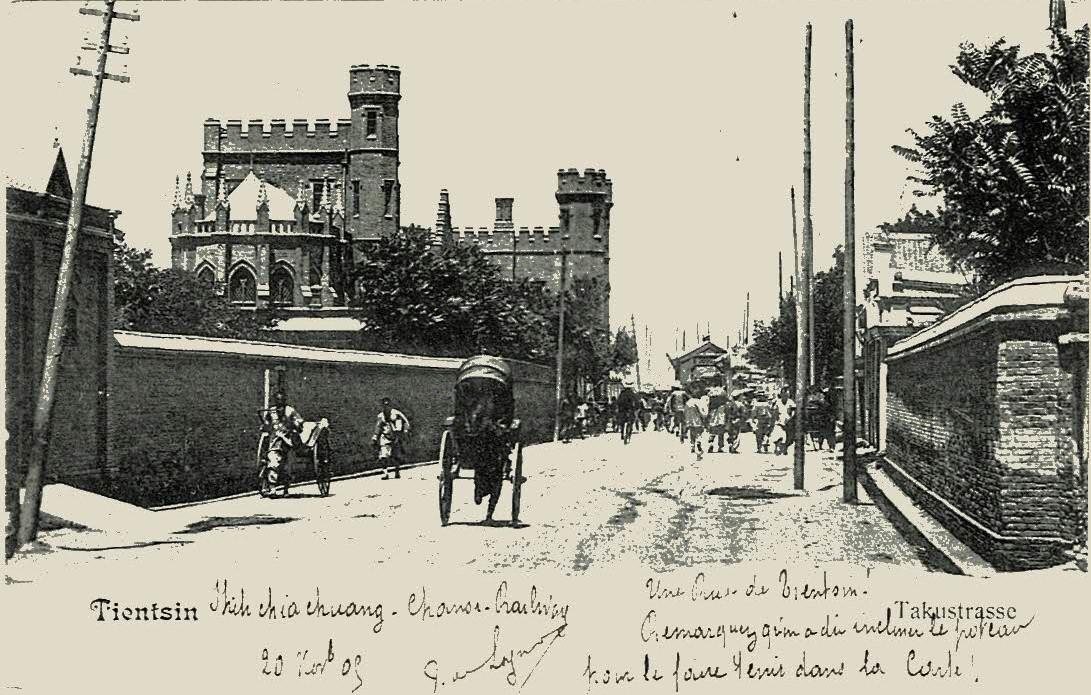 Tientsin
Shih chia chuang - Chansi - Railway
20 Novb 05
Une Rue de Tientsin!
Takustrasse
Remarquez qu'on a dû incliner le poteau
pour le faire tenir dans la Carte!